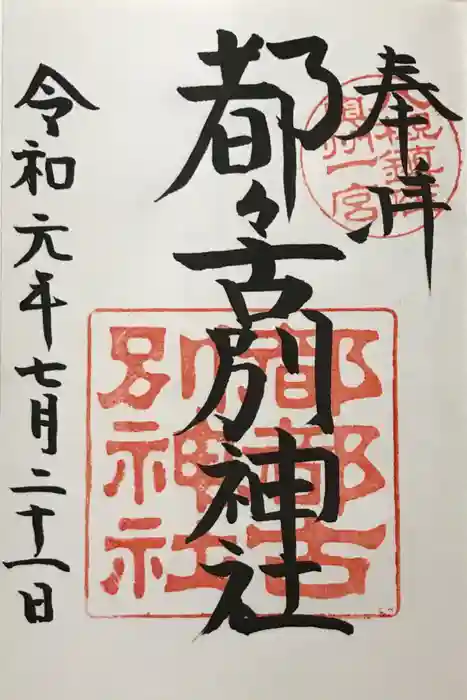 奉拝
都々古別神社
令和元年七月二十一日
都都古
別神社
一宮